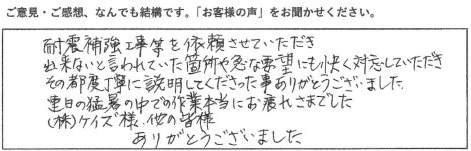 ご意見・ご感想、なんでも結構です。「お客様の声」をお聞かせください。
耐震補強工事等を依頼させていただき
出来ないと言われていた箇所や急な要望にも快く対応していただき
その都度丁寧に説明してくださった事ありがとうございました。
連日の猛暑の中での作業本当にお疲れさまでした
(株)ケイズ様・他の皆様
ありがとうございました。